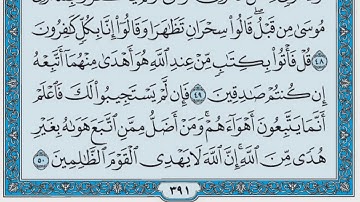 مُوسَىٰ مِن قَبْلُ ۖ قَالُوا۟ سِحْرَانِ تَظَٰهَرَا وَقَالُوٓا۟ إِنَّا بِكُلٍّ كَٰفِرُونَ
٤٨ قُلْ فَأْتُوا۟ بِكِتَٰبٍ مِّنْ عِندِ ٱللَّهِ هُوَ أَهْدَىٰ مِنْهُمَآ أَتَّبِعْهُ
إِن كُنتُمْ صَٰدِقِينَ ٤٩ فَإِن لَّمْ يَسْتَجِيبُوا۟ لَكَ فَٱعْلَمْ
أَنَّمَا يَتَّبِعُونَ أَهْوَآءَهُمْ ۚ وَمَنْ أَضَلُّ مِمَّنِ ٱتَّبَعَ هَوَىٰهُ بِغَيْرِ
هُدًى مِّنَ ٱللَّهِ ۚ إِنَّ ٱللَّهَ لَا يَهْدِى ٱلْقَوْمَ ٱلظَّٰلِمِينَ ٥٠
٣٩١